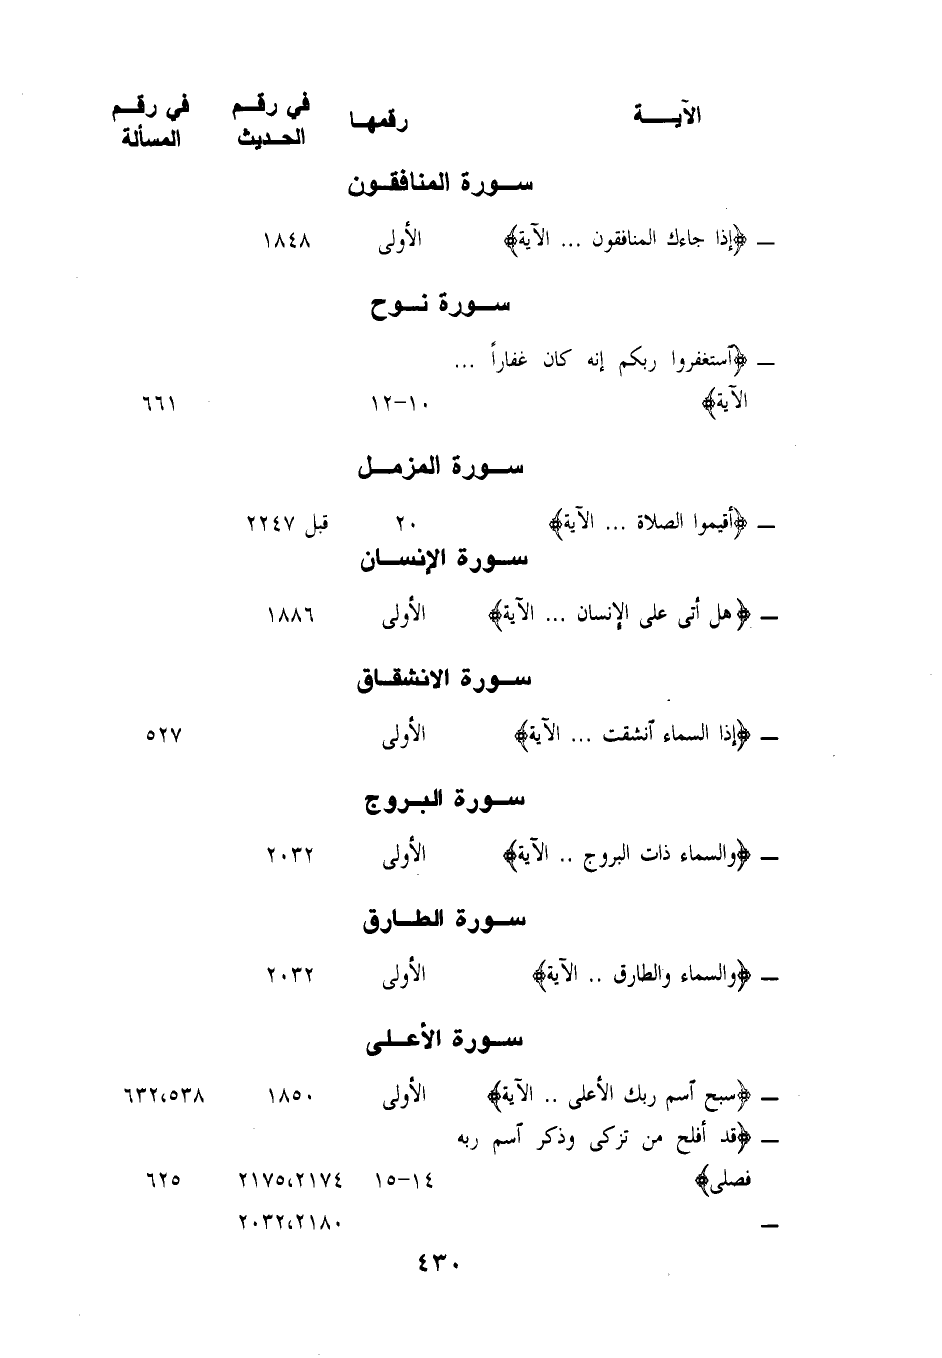 الآيـــة رقمهـا في رقـم في رقـم
الحـديث المسألة
سـورة المنافقـون
ــ ﴿إذا جاءك المنافقون ... الآية﴾ الأولى ١٨٤٨
سـورة نـوح
ــ ﴿ٱستغفروا ربكم إنه كان غفاراً ...
الآية﴾ ١٠-١٢ ٦٦١
سـورة المزمـل
ــ ﴿أقيموا الصلاة ... الآية﴾ ٢٠ قبل ٢٢٤٧
سـورة الإنسـان
ــ ﴿هل أتى على الإنسان ... الآية﴾ الأولى ١٨٨٦
سـورة الانشقـاق
ــ ﴿إذا السماء ٱنشقت ... الآية﴾ الأولى ٥٢٧
سـورة البـروج
ــ ﴿والسماء ذات البروج .. الآية﴾ الأولى ٢٠٣٢
سـورة الطـارق
ــ ﴿والسماء والطارق .. الآية﴾ الأولى ٢٠٣٢
سـورة الأعـلـى
ــ ﴿سبح ٱسم ربك الأعلى .. الآية﴾ الأولى ١٨٥٠ ٦٣٢،٥٣٨
ــ ﴿قد أفلح من تزكى وذكر ٱسم ربه
فصلى﴾ ١٤-١٥ ٢١٧٥،٢١٧٤ ٦٢٥
ــ ٢٠٣٢،٢١٨٠
٤٣٠